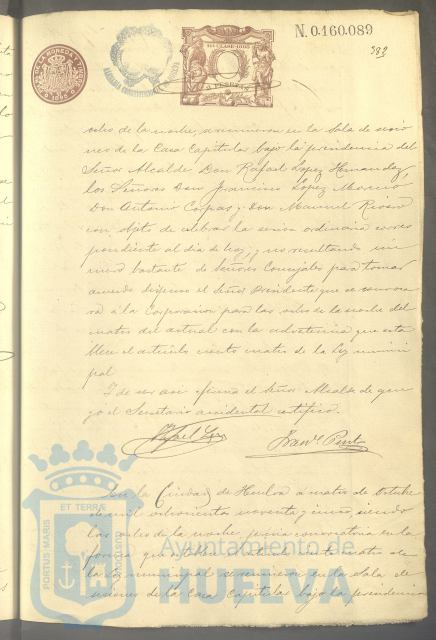 N. 0.160.089
382
ocho de la noche, se reunieron en la Sala de sesio
nes de la Casa Capitular bajo la presidencia del
Señor Alcalde Don Rafael Lopez Hernandez,
los Señores Don Francisco Lopez Moreno
Don Antonio Corpas y Don Manuel Rivero
con objto de celebrar la sesion ordinaria corres
pondiente al dia de hoy, y no resultando nú
mero bastante de Señores Concejales para tomar
acuerdo dispuso el Señor Presidente que se convoca
ra á la Corporacion para las ocho de la noche del
cuatro del actual con la advertencia que esta
blece el artículo ciento cuatro de la Ley munici
pal
Y de ser asi firma el Señor Alcalde de que
yo el Secretario accidental certifico.
Rafael Lopez
En la Ciudad de Huelva a cuatro de Octubre
de mil ochocientos noventa y cinco, siendo
las ocho de la noche, previa convocatoria en la
forma que establece el artículo ciento cuatro de
la Ley municipal se reunieron en la Sala de
sesiones de la Casa Capitular bajo la presidencia
PORTUS MARIS
ET TERRÆ
Ayuntamiento de
HUELVA